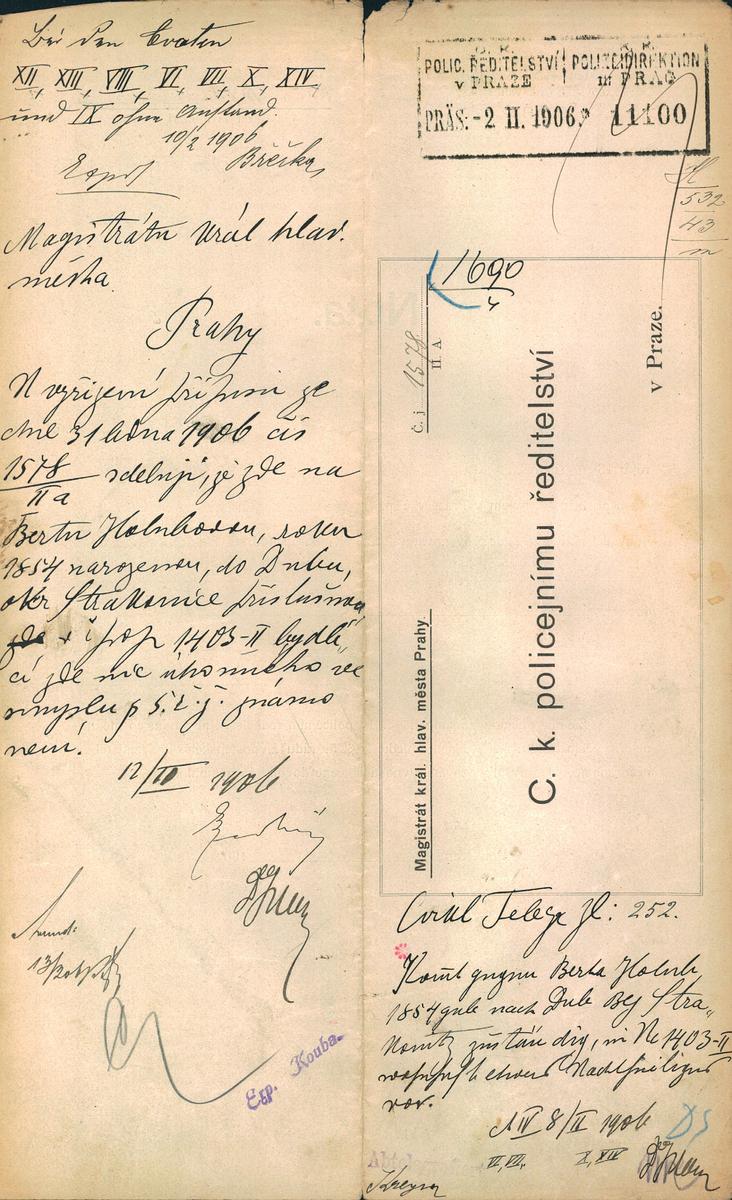 Bei den Evaten
XII, XIII, VIII, VI, VII, X, XIV,
und IX ohne Anstand.
10/2 1906
Expd
Magistrátu král. hlav.
města
Prahy
K vyřízení přípisu ze
dne 31 ledna 1906 čís
1578/II a sděluji, že zde na
Bertu Holubovou, roku
1854 narozenou, do Dubu,
okr Strakonice příslušnou
v č pop 1403-II bydlí
cí zde nic úhonného ve
smyslu § 5. t. j. známo
není.
12/II 1906
Exp. Kouba.
C. K. POLIC. ŘEDITELSTVÍ v PRAZE
K. K. POLIZEIDIREKTION in PRAG
PRÄS: -2 II. 1906. 11100
532
43
1690
Č. j. 1578
II. A
Magistrát král. hlav. města Prahy.
C. k. policejnímu ředitelství
v Praze.
252.
Kommt gegen Berta Holub
1854 geb. nach Dub Bez Stra„
konitz zuständig, in Nc 1403-II
wohnhaft etwas Nachtheiliges
vor.
IV 8/II 1906
VI, VII, X, XIV